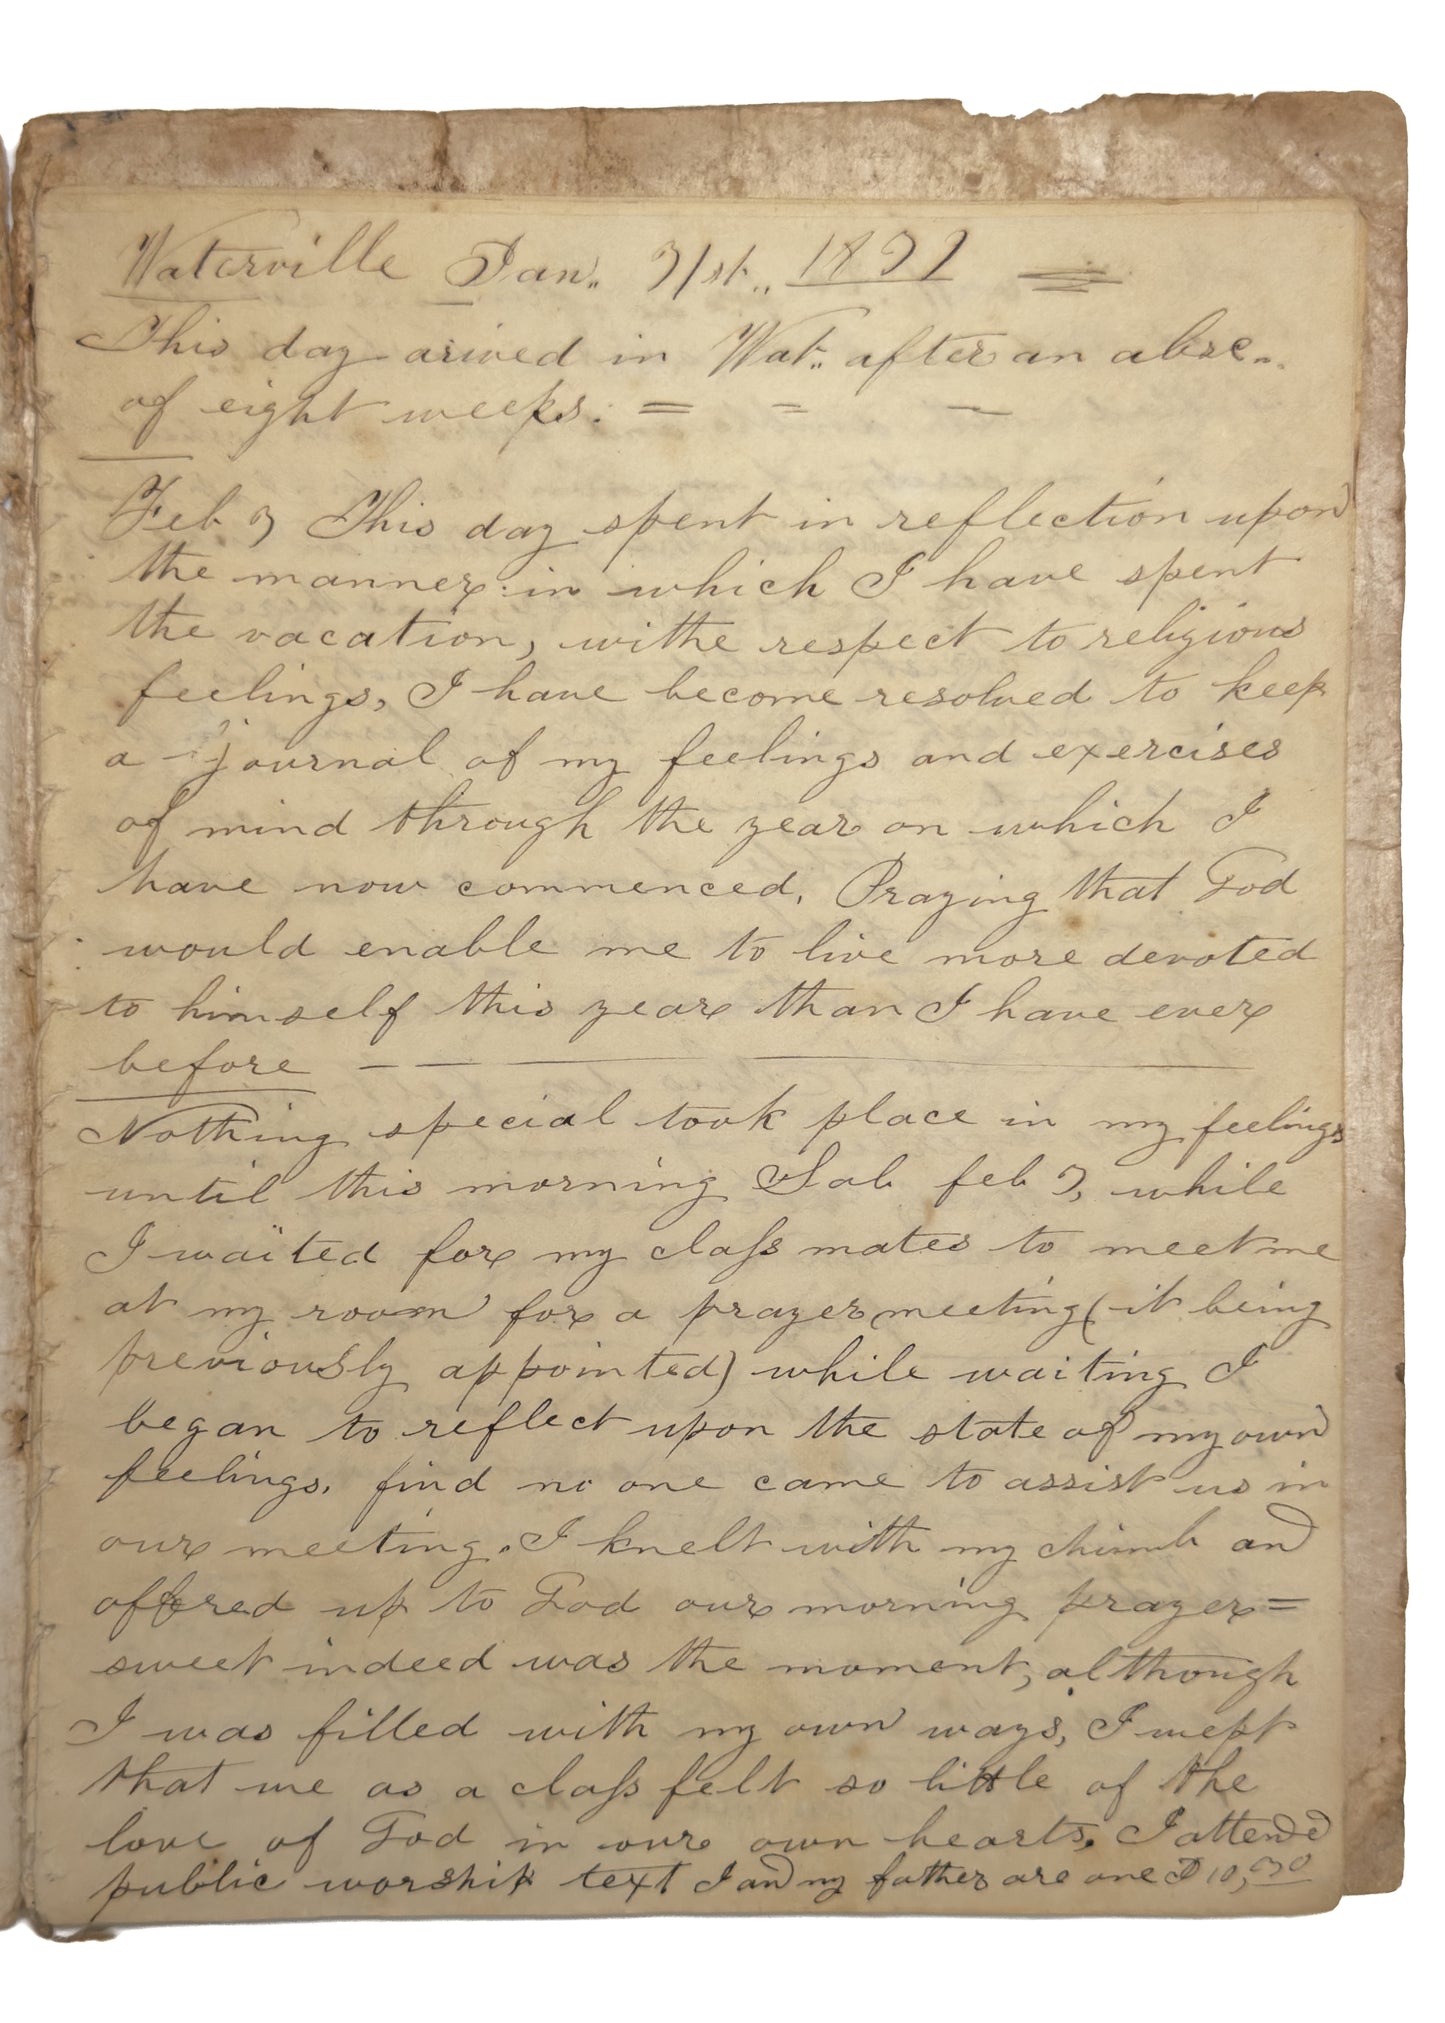 Waterville Jan.. 31st.. 1833
This day arived in Wat.. after an absc..
of eight weeks. = = -
Feb 3 This day spent in reflection upon
the manner in which I have spent
the vacation, withe respect to religious
feelings, I have become resolved to keep
a journal of my feelings and exercises
of mind through the year on which I
have now commenced. Praying that God
would enable me to live more devoted
to himself this year than I have ever
before — — —
Nothing special took place in my feelings
until this morning Sab feb 3, while
I waited for my class mates to meet me
at my room for a prayer meeting (it being
previously appointed) while waiting I
began to reflect upon the state of my own
feelings. find no one came to assist us in
our meeting. I knelt with my chumb and
offered up to God our morning prayer =
sweet indeed was the moment, although
I was filled with my own ways, I wept
that we as a class felt so little of the
love of God in our own hearts. I attended
public worship text I and my father are one J 10,30